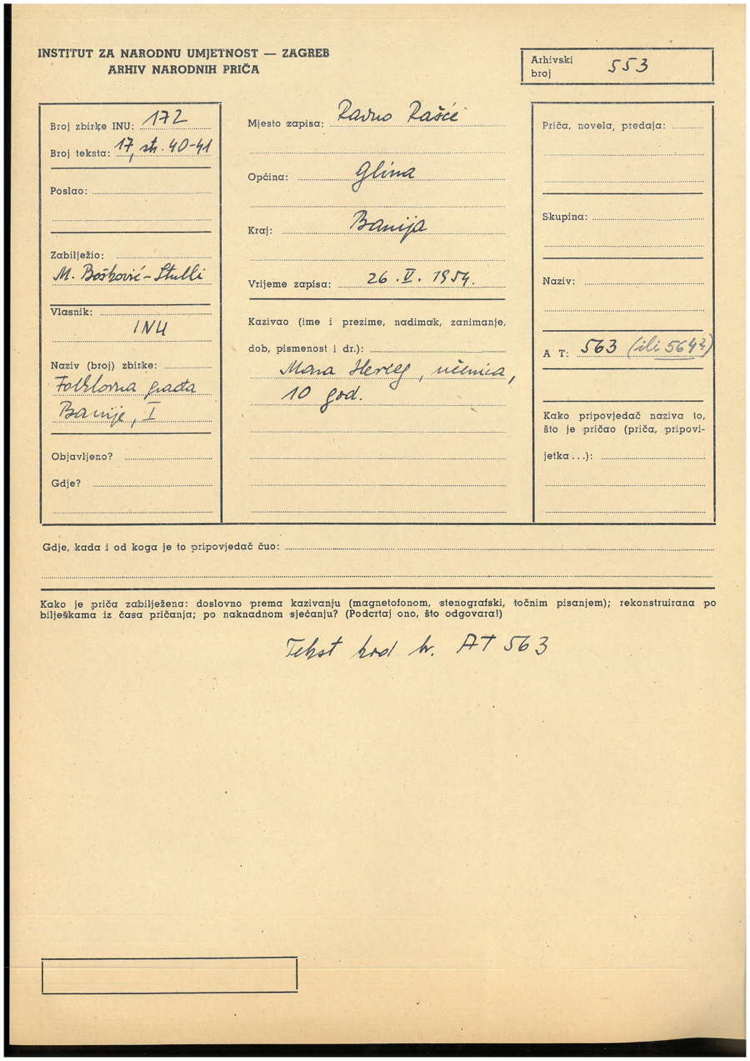 INSTITUT ZA NARODNU UMJETNOST — ZAGREB
ARHIV NARODNIH PRIČA
Arhivski broj 553
Broj zbirke INU: 172
Broj teksta: 17, str. 40-41
Poslao:
Zabilježio:
M. Bošković-Stulli
Vlasnik:
INU
Naziv (broj) zbirke:
Folklorna građa
Banije, I
Objavljeno?
Gdje?
Mjesto zapisa: Ravno Rašće
Općina: Glina
Kraj: Banija
Vrijeme zapisa: 26. V. 1954.
Kazivao (ime i prezime, nadimak, zanimanje,
dob, pismenost i dr.):
Mara Herceg, učenica,
10 god.
Priča, novela, predaja:
Skupina:
Naziv:
A T: 563 (ili 564?)
Kako pripovjedač naziva to,
što je pričao (priča, pripovi-
jetka...):
Gdje, kada i od koga je to pripovjedač čuo:
Kako je priča zabilježena: doslovno prema kazivanju (magnetofonom, stenografski, točnim pisanjem); rekonstruirana po
bilješkama iz časa pričanja; po naknadnom sjećanju? (Podcrtaj ono, što odgovara!)
Tekst kod br. AT 563